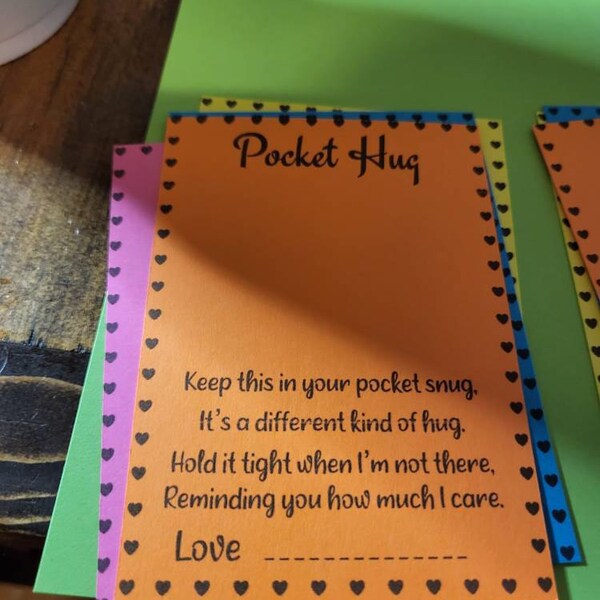 Pocket Hug
Keep this in your pocket snug,
It's a different kind of hug.
Hold it tight when I'm not there,
Reminding you how much I care.
Love _______________